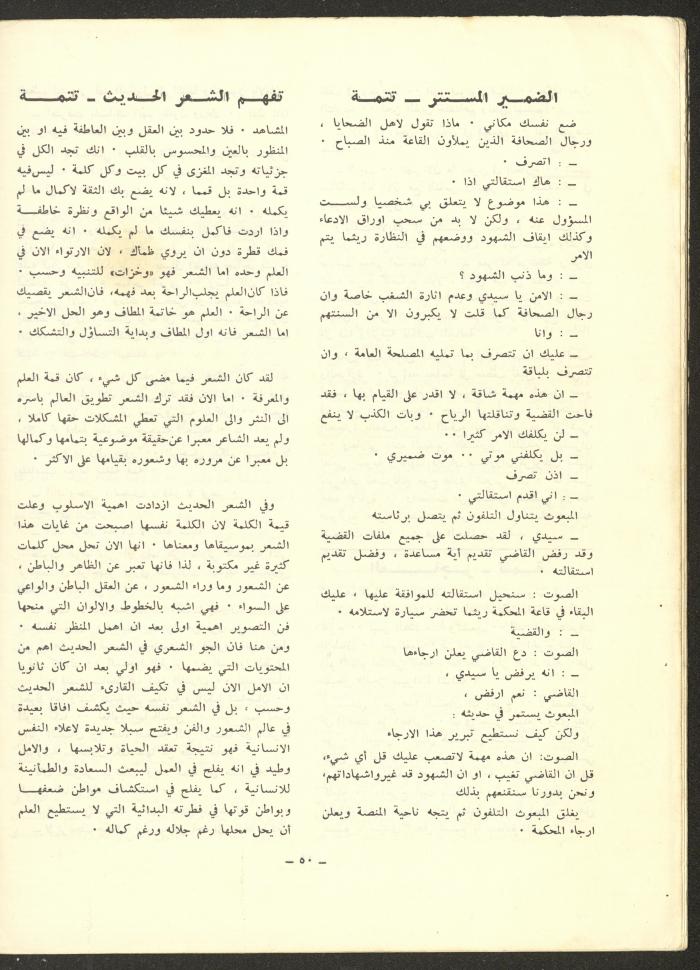 الضمير المستتر ــ تتمة
ضع نفسك مكاني ٠ ماذا تقول لاهل الضحايا ،
ورجال الصحافة الذين يملأون القاعة منذ الصباح ٠
ــ : اتصرف ٠
ــ : هاك استقالتي اذا ٠
ــ : هذا موضوع لا يتعلق بي شخصيا ولست
المسؤول عنه ، ولكن لا بد من سحب اوراق الادعاء
وكذلك ايقاف الشهود ووضعهم في النظارة ريثما يتم
الامر
ــ : وما ذنب الشهود ؟
ــ : الامن يا سيدي وعدم اثارة الشغب خاصة وان
رجال الصحافة كما قلت لا يكبرون الا من السنتهم
ــ : وانا
ــ عليك ان تتصرف بما تمليه المصلحة العامة ، وان
تتصرف بلباقة
ــ ان هذه مهمة شاقة ، لا اقدر على القيام بها ، فقد
فاحت القضية وتناقلتها الرياح ٠ وبات الكذب لا ينفع
ــ لن يكلفك الامر كثيرا ٠٠
ــ بل يكلفني موتي ٠٠ موت ضميري ٠
ــ اذن تصرف
ــ : اني اقدم استقالتي ٠
المبعوث يتناول التلفون ثم يتصل برئاسته
ــ سيدي ، لقد حصلت على جميع ملفات القضية
وقد رفض القاضي تقديم أية مساعدة ، وفضل تقديم
استقالته ٠
الصوت : سنحيل استقالته للموافقة عليها ، عليك
البقاء في قاعة المحكمة ريثما تحضر سيارة لاستلامه ٠
ــ : والقضية
الصوت : دع القاضي يعلن ارجاءها
ــ : انه يرفض يا سيدي ،
القاضي : نعم ارفض ،
المبعوث يستمر في حديثه :
ولكن كيف نستطيع تبرير هذا الارجاء
الصوت: ان هذه مهمة لاتصعب عليك قل أي شيء،
قل ان القاضي تغيب ، او ان الشهود قد غيرواشهاداتهم،
ونحن بدورنا سنقنعهم بذلك
يغلق المبعوث التلفون ثم يتجه ناحية المنصة ويعلن
ارجاء المحكمة ٠
تفهم الشعر الحديث ــ تتمة
المشاهد ٠ فلا حدود بين العقل وبين العاطفة فيه او بين
المنظور بالعين والمحسوس بالقلب ٠ انك تجد الكل في
جزئياته وتجد المغزى في كل بيت وكل كلمة ٠ ليس فيه
قمة واحدة بل قمما ، لانه يضع بك الثقة لاكمال ما لم
يكمله ٠ انه يعطيك شيئا من الواقع ونظرة خاطفة
واذا اردت فاكمل بنفسك ما لم يكمله ٠ انه يضع في
فمك قطرة دون ان يروي ظمأك ، لان الارتواء الان في
العلم وحده اما الشعر فهو «وخزات» للتنبيه وحسب ٠
فاذا كان العلم يجلب الراحة بعد فهمه، فان الشعر يقصيك
عن الراحة ٠ العلم هو خاتمة المطاف وهو الحل الاخير ،
اما الشعر فانه اول المطاف وبداية التساؤل والتشكك ٠
لقد كان الشعر فيما مضى كل شيء ، كان قمة العلم
والمعرفة ٠ اما الان فقد ترك الشعر تطويق العالم باسره
الى النثر والى العلوم التي تعطي المشكلات حقها كاملا ،
ولم يعد الشاعر معبرا عن حقيقة موضوعية بتمامها وكمالها
بل معبرا عن مروره بها وشعوره بقيامها على الاكثر ٠
وفي الشعر الحديث ازدادت اهمية الاسلوب وعلت
قيمة الكلمة لان الكلمة نفسها اصبحت من غايات هذا
الشعر بموسيقاها ومعناها ٠ انها الان تحل محل كلمات
كثيرة غير مكتوبة ، لذا فانها تعبر عن الظاهر والباطن ،
عن الشعور وما وراء الشعور ، عن العقل الباطن والواعي
على السواء ٠ فهي اشبه بالخطوط والالوان التي منحها
فن التصوير اهمية اولى بعد ان اهمل المنظر نفسه ٠
ومن هنا فان الجو الشعري في الشعر الحديث اهم من
المحتويات التي يضمها ٠ فهو اولي بعد ان كان ثانويا
ان الامل الان ليس في تكيف القارىء للشعر الحديث
وحسب ، بل في الشعر نفسه حيث يكشف افاقا بعيدة
في عالم الشعور والفن ويفتح سبلا جديدة لاعلاء النفس
الانسانية فهو نتيجة تعقد الحياة وتلابسها ، والامل
وطيد في انه يفلح في العمل ليبعث السعادة والطمأنينة
للانسانية ، كما يفلح في استكشاف مواطن ضعفها
وبواطن قوتها في فطرته البدائية التي لا يستطيع العلم
أن يحل محلها رغم جلاله ورغم كماله ٠
ــ ٥٠ ــ